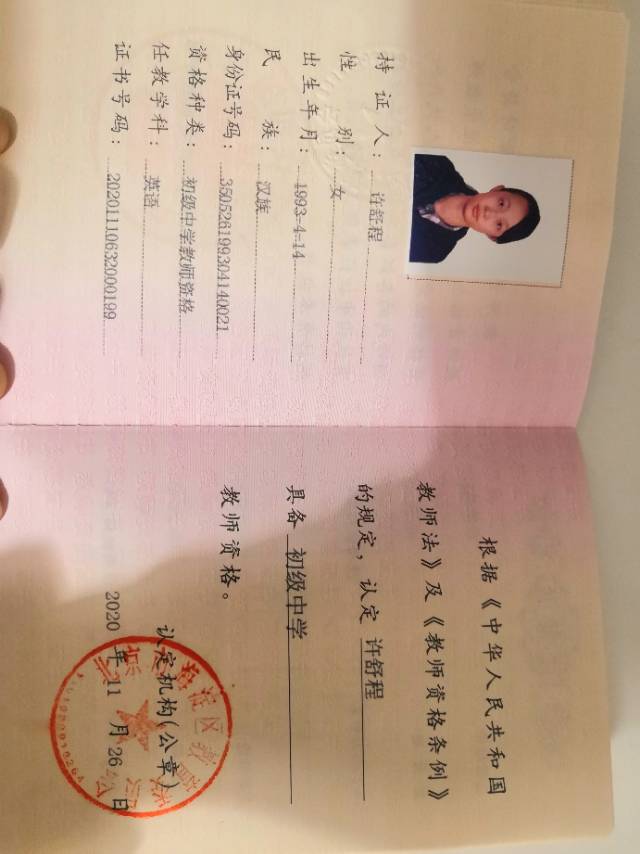 持 证 人：许舒程
性 别：女
出 生 年 月：1993-4-14
民 族：汉族
身份证号码：350526199304140021
资 格 种 类：初级中学教师资格
任 教 学 科：英语
证 书 号 码：20201110632000199
根据《中华人民共和国
教师法》及《教师资格条例》
的规定，认定 许舒程
具备 初级中学
教师资格。
认定机构(公章)
2020 年 11 月 26 日